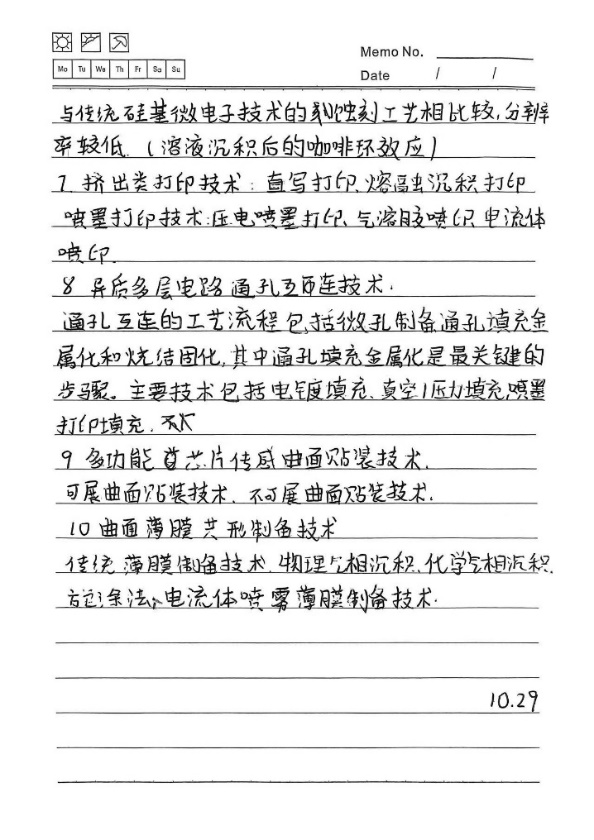 Memo No.
Mo Tu We Th Fr Sa Su
Date / /
与传统硅基微电子技术的刻蚀刻工艺相比较,分辨
率较低.(溶液沉积后的咖啡环效应)
7. 挤出类打印技术:直写打印.熔融沉积打印
喷墨打印技术:压电喷墨打印、气溶胶喷印.电流体
喷印.
8 异质多层电路通孔互连技术.
通孔互连的工艺流程包括微孔制备通孔填充金
属化和烧结固化,其中通孔填充金属化是最关键的
步骤。主要技术包括电镀填充.真空/压力填充,喷墨
打印填充.
9 多功能 芯片传感曲面贴装技术.
可展曲面贴装技术.不可展曲面贴装技术.
10 曲面薄膜共形制备技术
传统薄膜制备技术.物理气相沉积.化学气相沉积.
旋涂法、电流体喷雾薄膜制备技术.
10.29